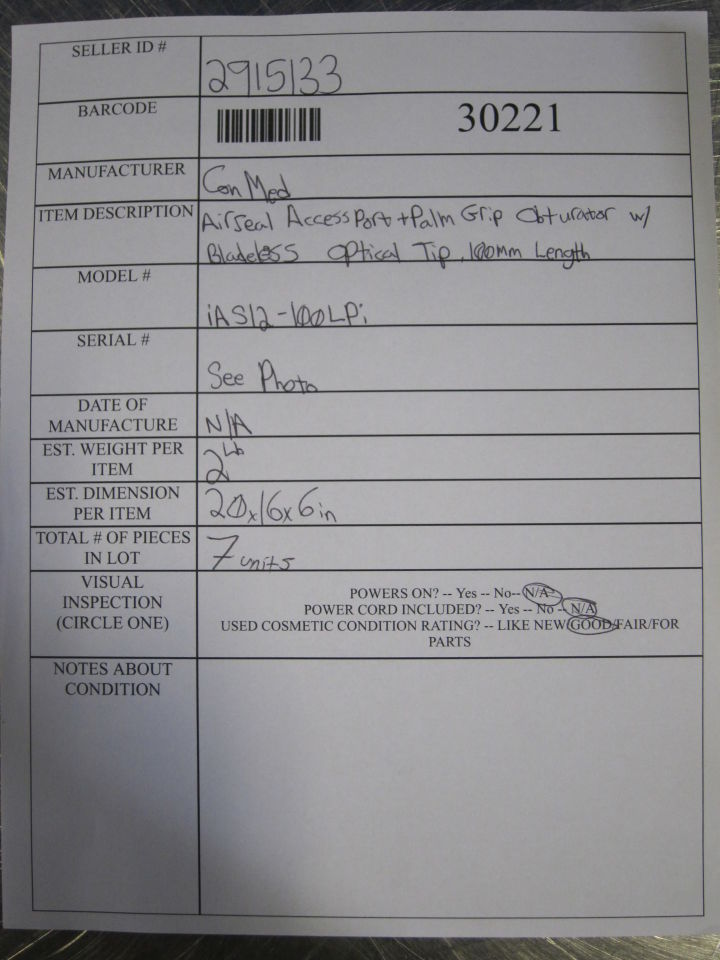 SELLER ID #
2915133
BARCODE
30221
MANUFACTURER
ConMed
ITEM DESCRIPTION
AirSeal Access Port + Palm Grip Obturator w/
Bladeless Optical Tip, 100mm Length
MODEL #
iAS12-100LPi
SERIAL #
See Photo
DATE OF
MANUFACTURE
N/A
EST. WEIGHT PER
ITEM
2Lb
EST. DIMENSION
PER ITEM
20x16x6in
TOTAL # OF PIECES
IN LOT
7 units
VISUAL
INSPECTION
(CIRCLE ONE)
POWERS ON? -- Yes -- No-- N/A-
POWER CORD INCLUDED? -- Yes -- No -- N/A
USED COSMETIC CONDITION RATING? -- LIKE NEW/GOOD/FAIR/FOR
PARTS
NOTES ABOUT
CONDITION